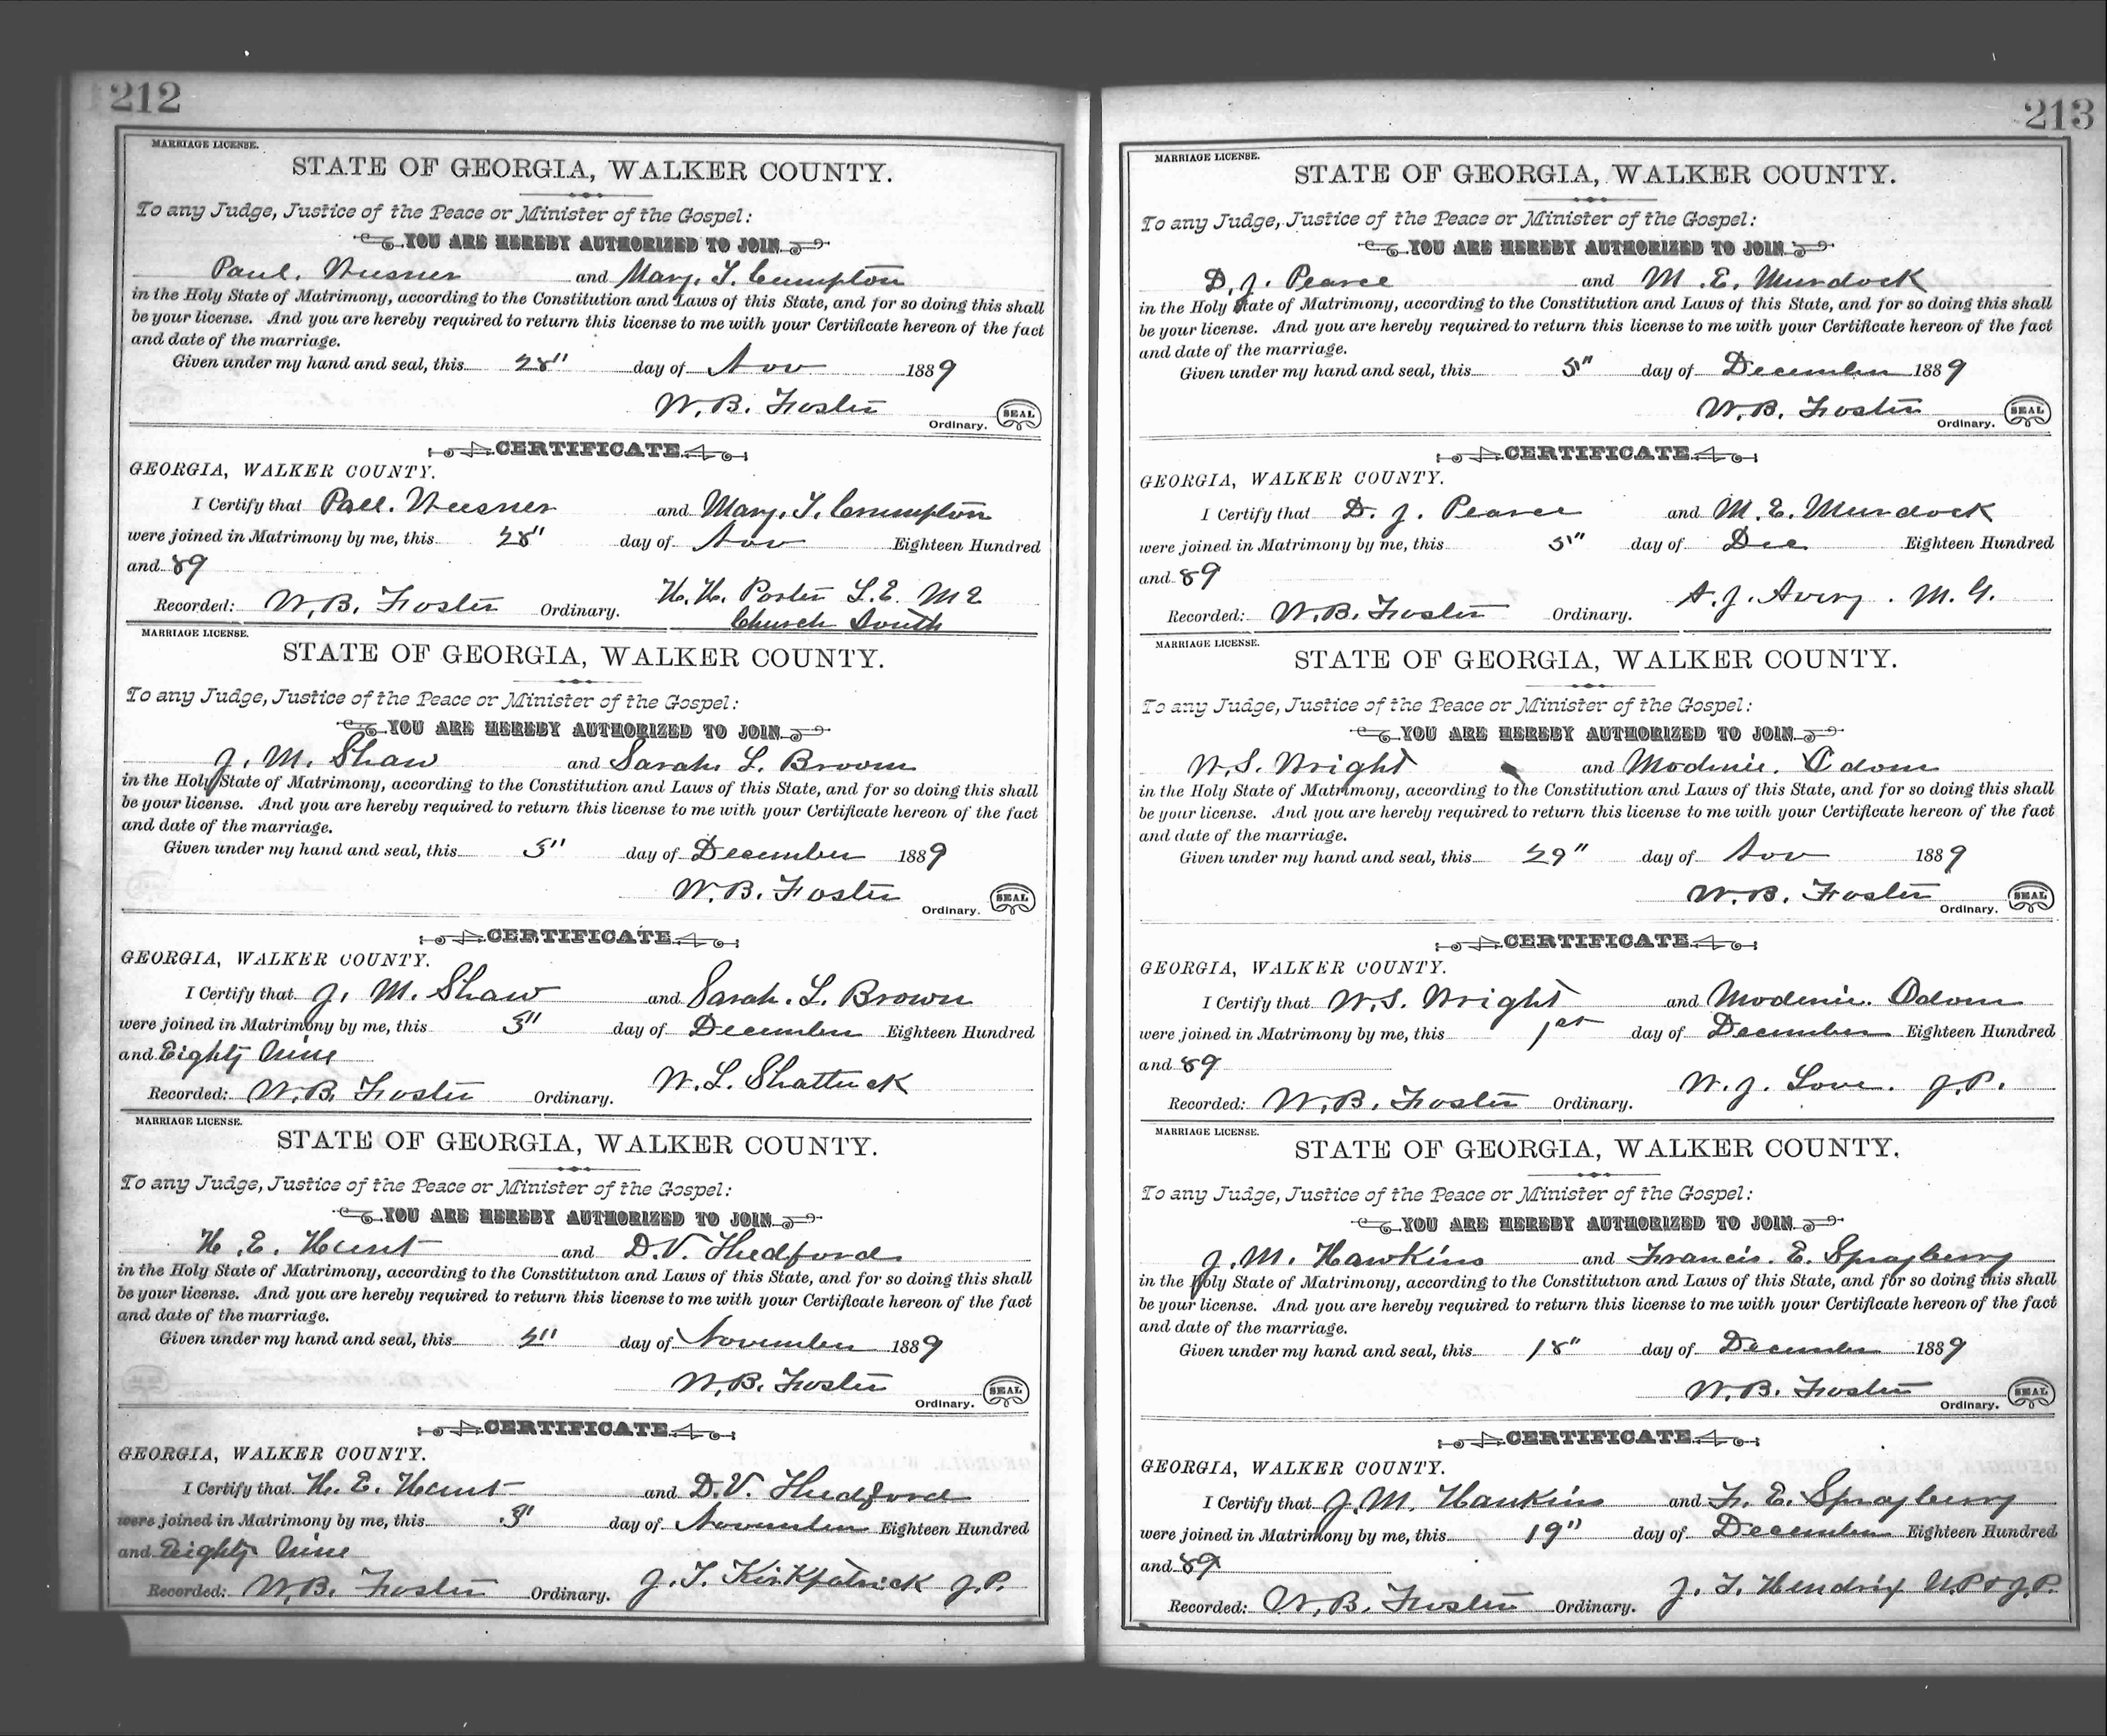 212
MARRIAGE LICENSE.
STATE OF GEORGIA, WALKER COUNTY.
To any Judge, Justice of the Peace or Minister of the Gospel:
YOU ARE HEREBY AUTHORIZED TO JOIN
Paul. and Mary. T. Cumpton
in the Holy State of Matrimony, according to the Constitution and Laws of this State, and for so doing this shall
be your license. And you are hereby required to return this license to me with your Certificate hereon of the fact
and date of the marriage.
Given under my hand and seal, this 28" day of Nov 1889
W. B. Foster SEAL
Ordinary.
CERTIFICATE
GEORGIA, WALKER COUNTY.
I Certify that and Mary. T. Crumpton
were joined in Matrimony by me, this 28" day of Nov Eighteen Hundred
and 89
H. H. Porter L. E. M E
Recorded: W. B. Foster Ordinary. Church South
MARRIAGE LICENSE.
STATE OF GEORGIA, WALKER COUNTY.
To any Judge, Justice of the Peace or Minister of the Gospel:
YOU ARE HEREBY AUTHORIZED TO JOIN
J. M. Shaw and Sarah. L. Broom
in the Holy State of Matrimony, according to the Constitution and Laws of this State, and for so doing this shall
be your license. And you are hereby required to return this license to me with your Certificate hereon of the fact
and date of the marriage.
Given under my hand and seal, this 3" day of December 1889
W. B. Foster SEAL
Ordinary.
CERTIFICATE
GEORGIA, WALKER COUNTY.
I Certify that J. M. Shaw and Sarah. L. Brown
were joined in Matrimony by me, this 3" day of December Eighteen Hundred
and Eighty Nine
W. L. Shattuck
Recorded: W. B. Foster Ordinary.
MARRIAGE LICENSE.
STATE OF GEORGIA, WALKER COUNTY.
To any Judge, Justice of the Peace or Minister of the Gospel:
YOU ARE HEREBY AUTHORIZED TO JOIN
H. E. Hunt and D. V. Thedford
in the Holy State of Matrimony, according to the Constitution and Laws of this State, and for so doing this shall
be your license. And you are hereby required to return this license to me with your Certificate hereon of the fact
and date of the marriage.
Given under my hand and seal, this 2" day of November 1889
W. B. Foster SEAL
Ordinary.
CERTIFICATE
GEORGIA, WALKER COUNTY.
I Certify that H. E. Hunt and D. V. Thedford
were joined in Matrimony by me, this 3" day of November Eighteen Hundred
and Eighty Nine
Recorded: W. B. Foster Ordinary. J. T. Kirkpatrick J. P.
213
MARRIAGE LICENSE.
STATE OF GEORGIA, WALKER COUNTY.
To any Judge, Justice of the Peace or Minister of the Gospel:
YOU ARE HEREBY AUTHORIZED TO JOIN
D. J. Pearce and M. E. Murdock
in the Holy State of Matrimony, according to the Constitution and Laws of this State, and for so doing this shall
be your license. And you are hereby required to return this license to me with your Certificate hereon of the fact
and date of the marriage.
Given under my hand and seal, this 5" day of December 1889
W. B. Foster SEAL
Ordinary.
CERTIFICATE
GEORGIA, WALKER COUNTY.
I Certify that D. J. Pearce and M. E. Murdock
were joined in Matrimony by me, this 5" day of Dec Eighteen Hundred
and 89
Recorded: W. B. Foster Ordinary. A. J. Avery. M. G.
MARRIAGE LICENSE.
STATE OF GEORGIA, WALKER COUNTY.
To any Judge, Justice of the Peace or Minister of the Gospel:
YOU ARE HEREBY AUTHORIZED TO JOIN
W. S. Wright and Modenie. Odom
in the Holy State of Matrimony, according to the Constitution and Laws of this State, and for so doing this shall
be your license. And you are hereby required to return this license to me with your Certificate hereon of the fact
and date of the marriage.
Given under my hand and seal, this 29" day of Nov 1889
W. B. Foster SEAL
Ordinary.
CERTIFICATE
GEORGIA, WALKER COUNTY.
I Certify that W. S. Wright and Modenie. Odom
were joined in Matrimony by me, this 1st day of December Eighteen Hundred
and 89
W. J. Love. J. P.
Recorded: W. B. Foster Ordinary.
MARRIAGE LICENSE.
STATE OF GEORGIA, WALKER COUNTY.
To any Judge, Justice of the Peace or Minister of the Gospel:
YOU ARE HEREBY AUTHORIZED TO JOIN
J. M. Hawkins and Francis. E. Sprayberry
in the Holy State of Matrimony, according to the Constitution and Laws of this State, and for so doing this shall
be your license. And you are hereby required to return this license to me with your Certificate hereon of the fact
and date of the marriage.
Given under my hand and seal, this 18" day of December 1889
W. B. Foster SEAL
Ordinary.
CERTIFICATE
GEORGIA, WALKER COUNTY.
I Certify that J. M. Hankins and Fr. E. Sprayberry
were joined in Matrimony by me, this 19" day of December Eighteen Hundred
and 89
Recorded: W. B. Foster Ordinary. J. T. Hendrix N. P & J. P.